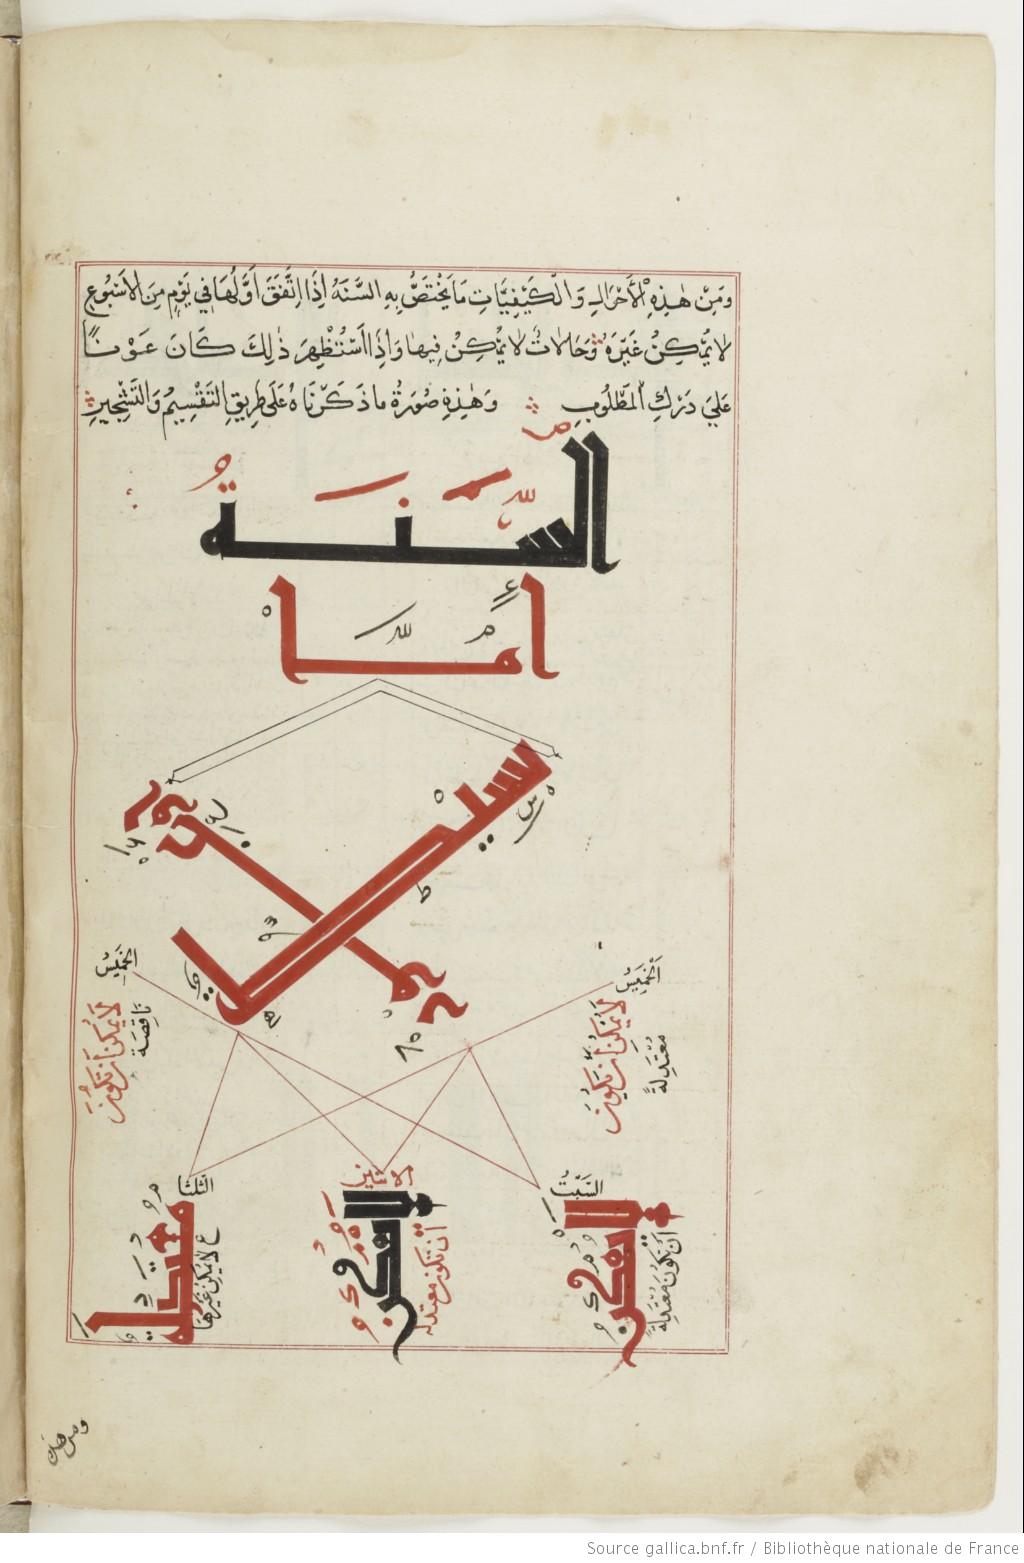 وَمِنْ هٰذِهِ الْأَحْوَالِ وَالْكَيْفِيَّاتِ مَا يَخْتَصُّ بِهِ السَّنَةُ إِذَا اتَّفَقَ أَوَّلُهَا فِي يَوْمٍ مِنَ الْأُسْبُوعِ
لَا يُمْكِنُ غَيْرُهُ وَحَالَاتٌ لَا يُمْكِنُ فِيهَا وَإِذَا اسْتُظْهِرَ ذٰلِكَ كَانَ عَوْنًا
عَلَى دَرَكِ الْمَطْلُوبِ وَهٰذِهِ صُورَةُ مَا ذَكَرْنَاهُ عَلَى طَرِيقِ التَّقْسِيمِ وَالتَّشْجِيرِ
السَّنَةُ
أَمَّا
بسيطة
الخَمِيسُ
الخَمِيسُ
لَا يُمْكِنُ أَنْ تَكُونَ
مُعْتَدِلَةً
لَا يُمْكِنُ أَنْ تَكُونَ
نَاقِصَة
السَّبْتُ
الاثنين
الثلثا
لا يمكن
أَنْ تَكُونَ مُعْتَدِلَةً
لا يمكن
أن تكون معتدلة
معتدلة
لا يمكن غيرها
Source gallica.bnf.fr / Bibliothèque nationale de France